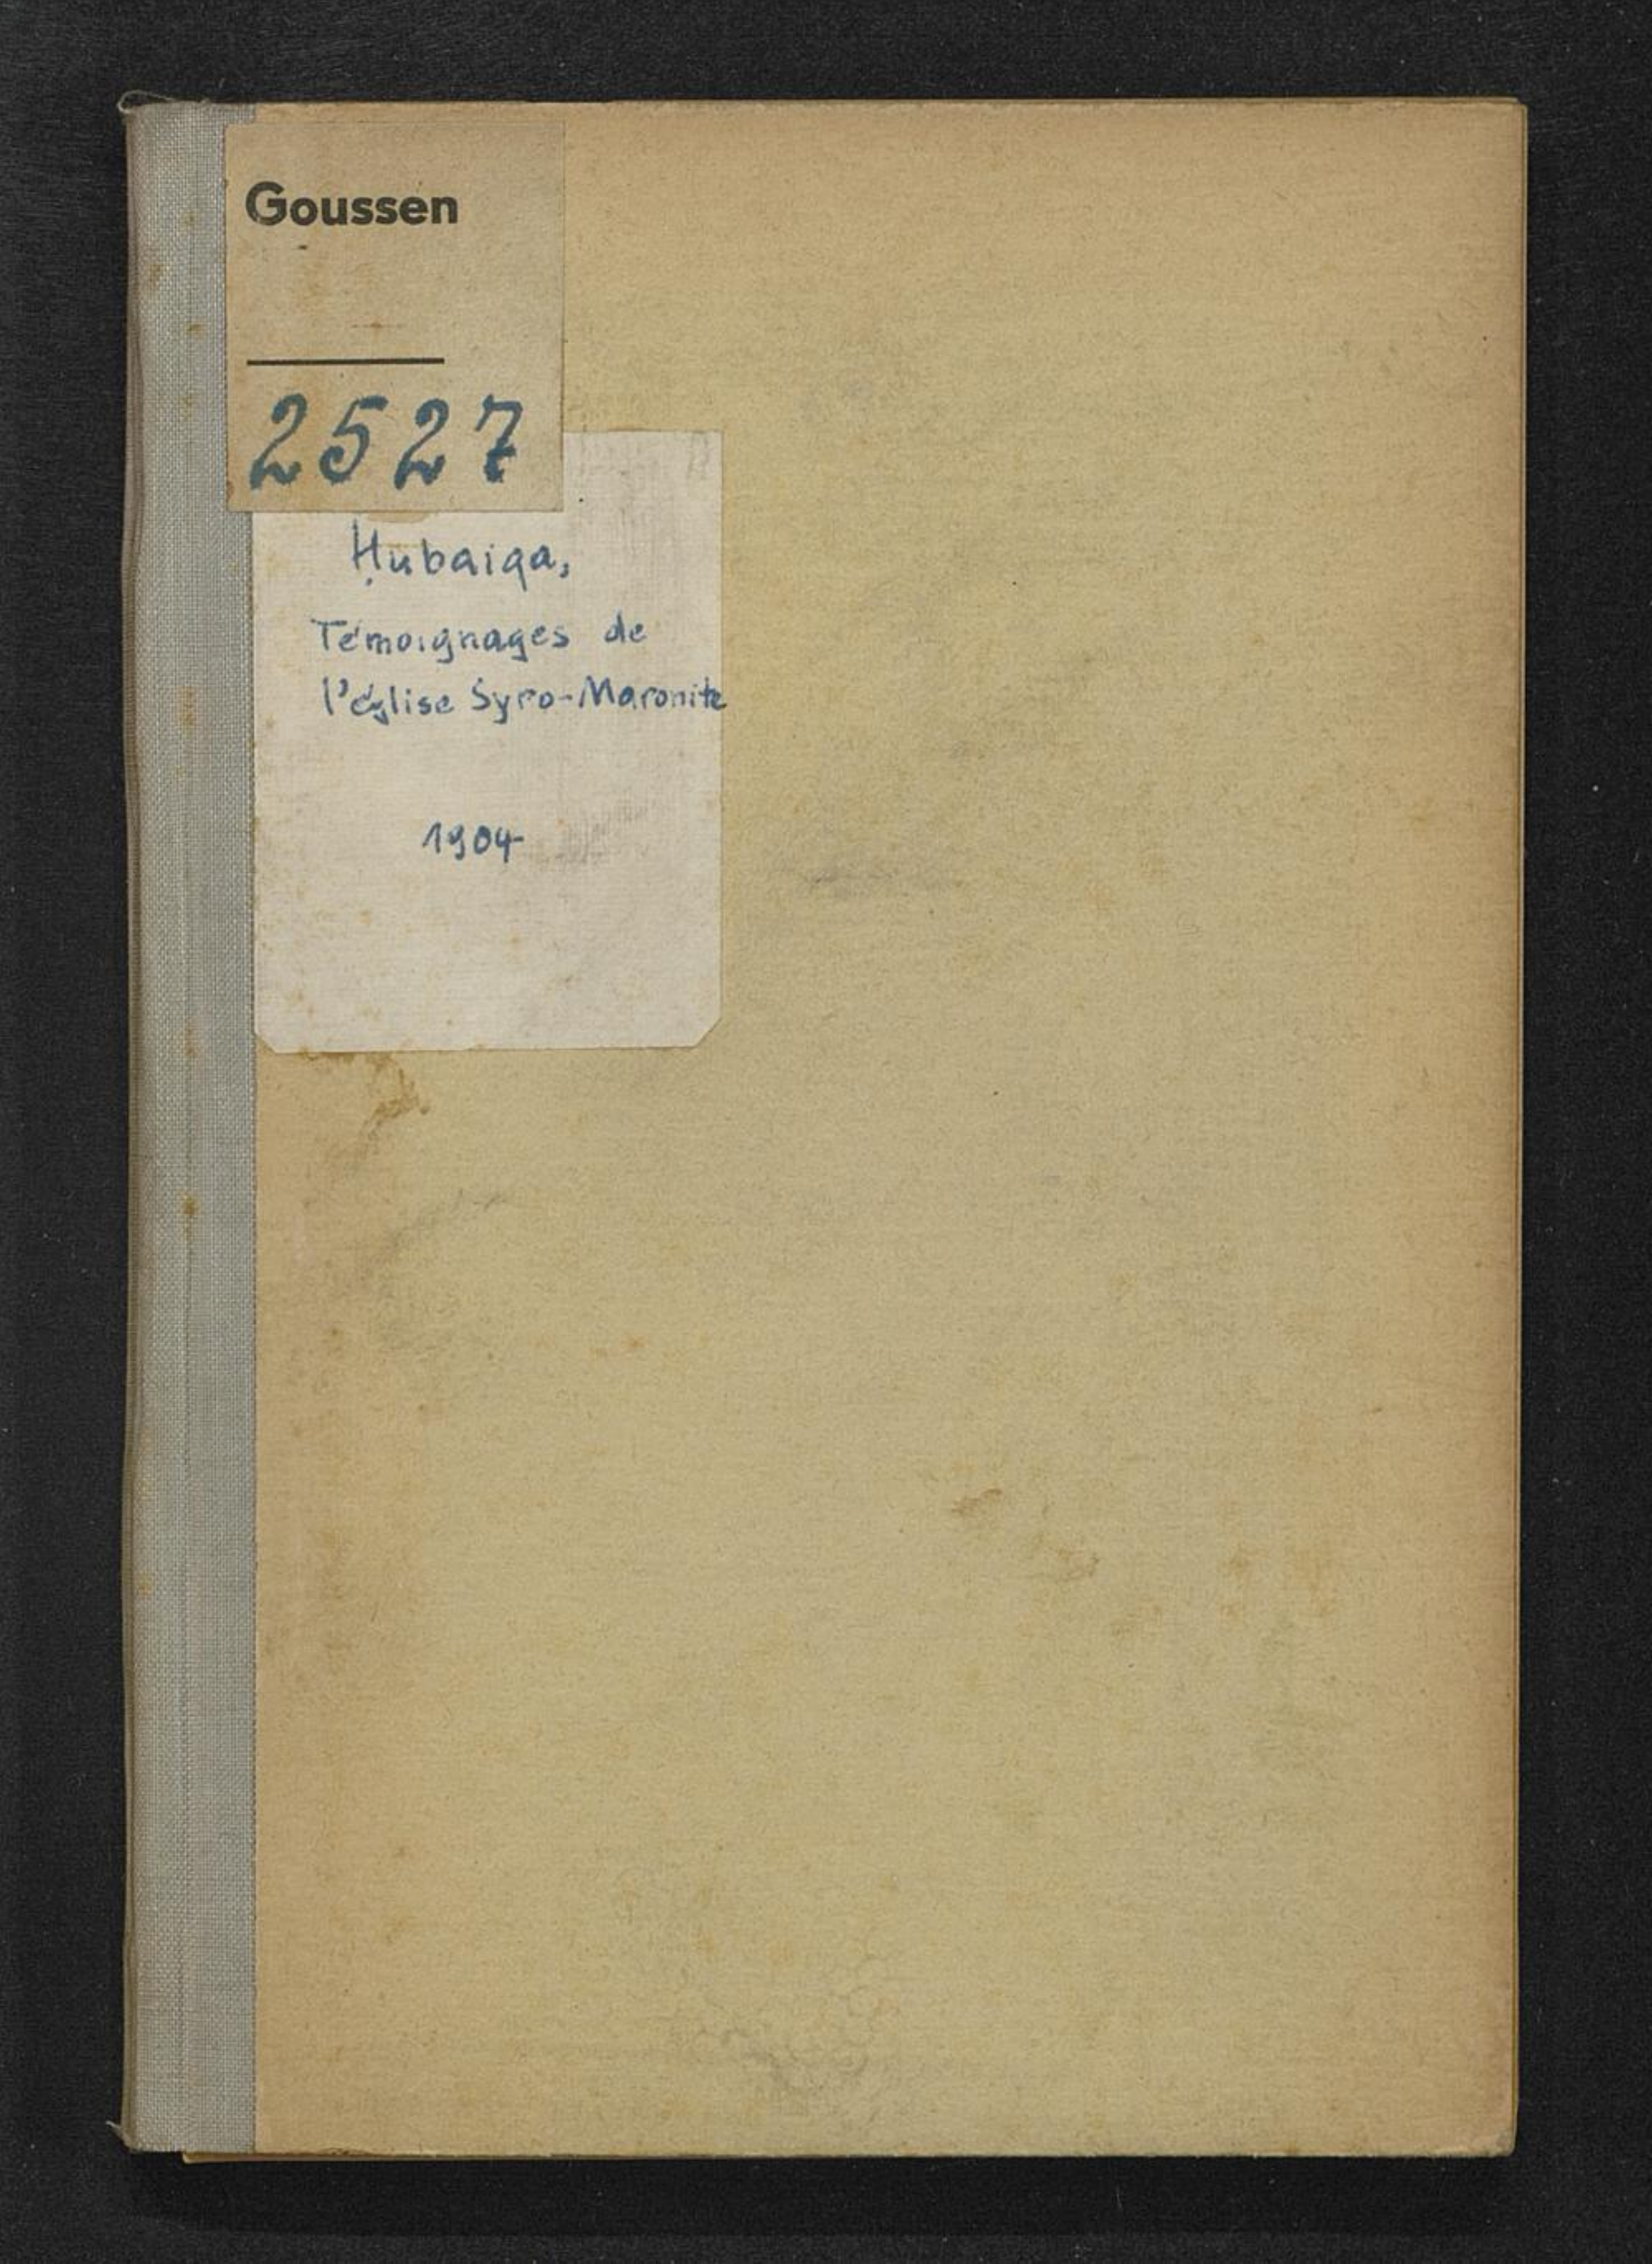 Goussen
2527
Ḥubaiqa,
Témoignages de
l'église Syro-Maronite
1904